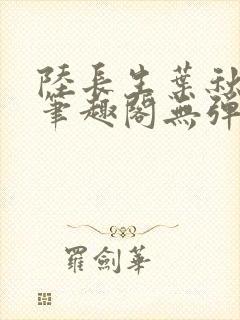 陸長生葉秋
筆趣閣無彈
羅劍華